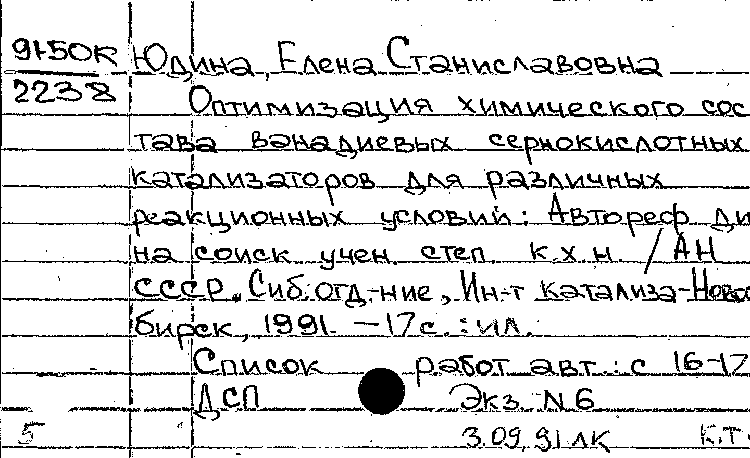 91-50К Юдина, Елена Станиславовна
2238 Оптимизация химического сос
тава ванадиевых сернокислотных
катализаторов для различных
реакционных условий: Автореф ди
на соиск учен. степ. к.х.н. / АН
СССР, Сиб. отд-ние, Ин-т катализа-Новос
бирск, 1991. – 17 с. : ил.
Список работ авт.: с 16-17
ДСП Экз. N 6
5 3.09.91 ЛК К.Т.